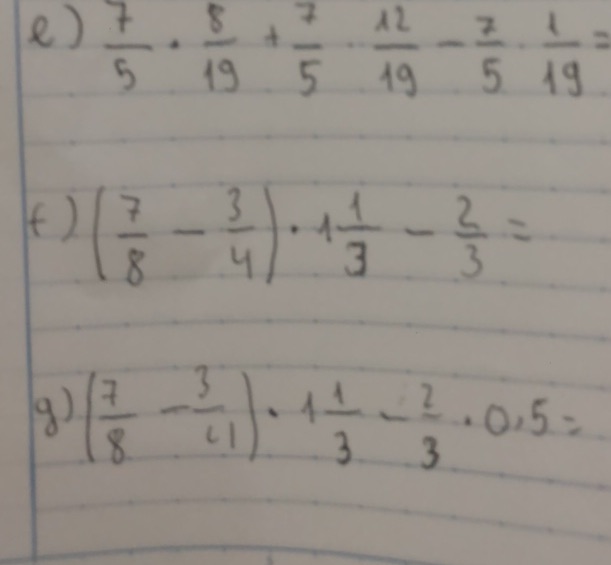 e) 7/5 · 8/19 + 7/5 · 12/19 − 7/5 · 1/19 =
f) (7/8 − 3/4) · 1 1/3 − 2/3 =
g) (7/8 − 3/4) · 1 1/3 − 2/3 · 0,5 =